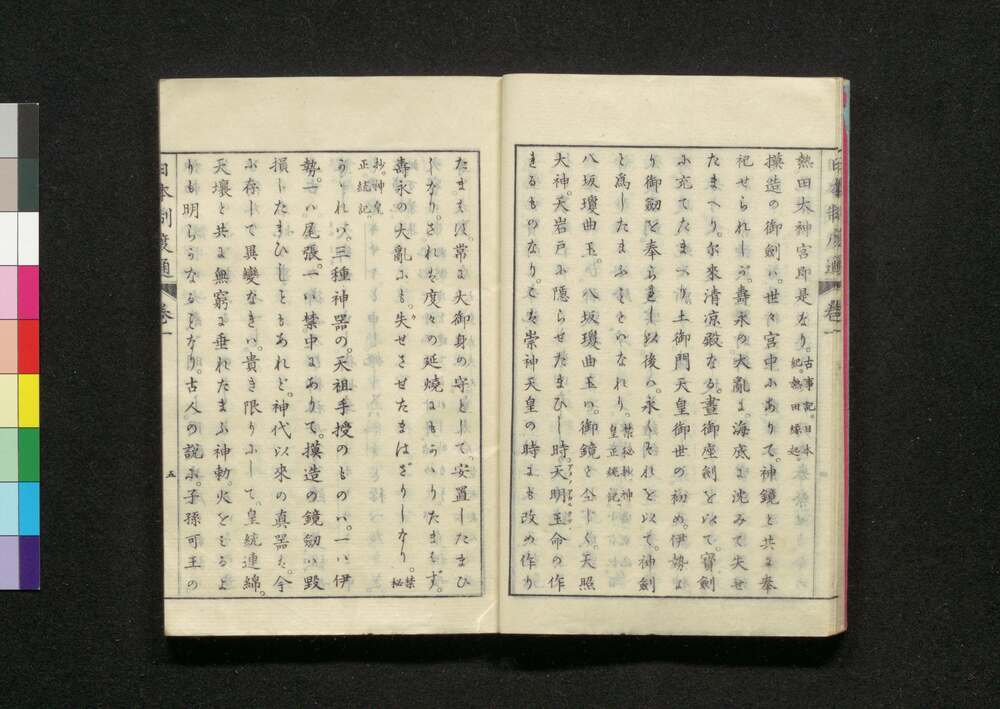 熱田大神宮即是なり。古事記。日本紀。熱田縁起。
摸造の御劍ハ。世々宮中ふありて。神鏡と共ま奉
祀せられしが。壽永の大亂ま。海底ま沈みて失せ
たまへり。尓來清凉殿なる。晝御座劍を以て。寳劍
ふ充てたまへり。土御門天皇御世の初め。伊勢よ
り御劒を奉られし以後ハ。永くそれを以て。神劍
と爲したまふことゝハなれり。禁秘抄。神皇正統記。
八坂瓊曲玉。八坂瓊曲玉ハ。御鏡と仝しく。天照
大神。天岩戸ふ隱らせたまひし時。天明玉命の作
れるものなり。こも崇神天皇の時まも改め作り
たまはで。常ま大御身の守として。安置したまひ
しなり。されば度々の延燒まもかゝりたまはず。
壽永の大亂ふも。失せさせたまはざりしなり。禁秘
抄。神皇正統記。
かゝれハ。三種神器の。天祖手授のものハ。一ハ伊
勢。一ハ尾張。一ハ禁中まありて。摸造の鏡劒ハ毀
損したまひしこともあれど。神代以來の真器も。今
ふ存して異變なきハ。貴き限りふして。皇統連綿。
天壤と共ま無窮ま垂れたまふ神勅。火をみるよ
りも明らかなることなり。古人の説ふ。子孫可王の
日本制度通
卷一
五